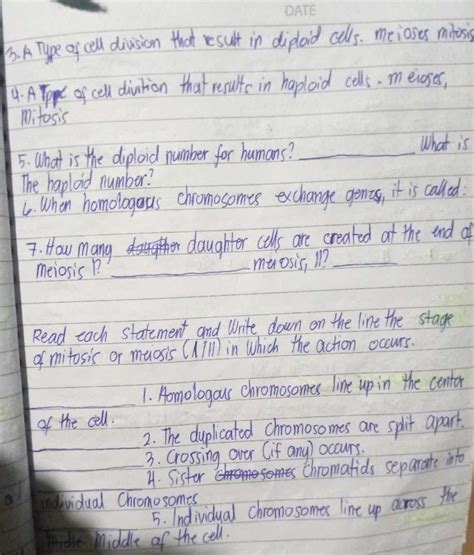 DATE
3. A Type of cell division that result in diploid cells. meioses mitosis
4. A Type of cell divition that results in haploid cells. meioses,
Mitosis
5. What is the diploid number for humans? __________ What is
The haploid number?
6. When homologous chromosomes exchange genes, it is called:
7. How many daugther daughter cells are created at the end of
meiosis I? __________ meiosis, II? ______
Read each statement and Write down on the line the stage
of mitosis or meiosis (I/II) in which the action occurs.
__________ 1. Homologous chromosomes line up in the center
of the cell.
__________ 2. The duplicated chromosomes are split apart.
__________ 3. Crossing over (if any) occurs.
__________ 4. Sister chromosomes chromatids separate into
individual Chromosomes
__________ 5. Individual chromosomes line up across the
Middle of the cell.